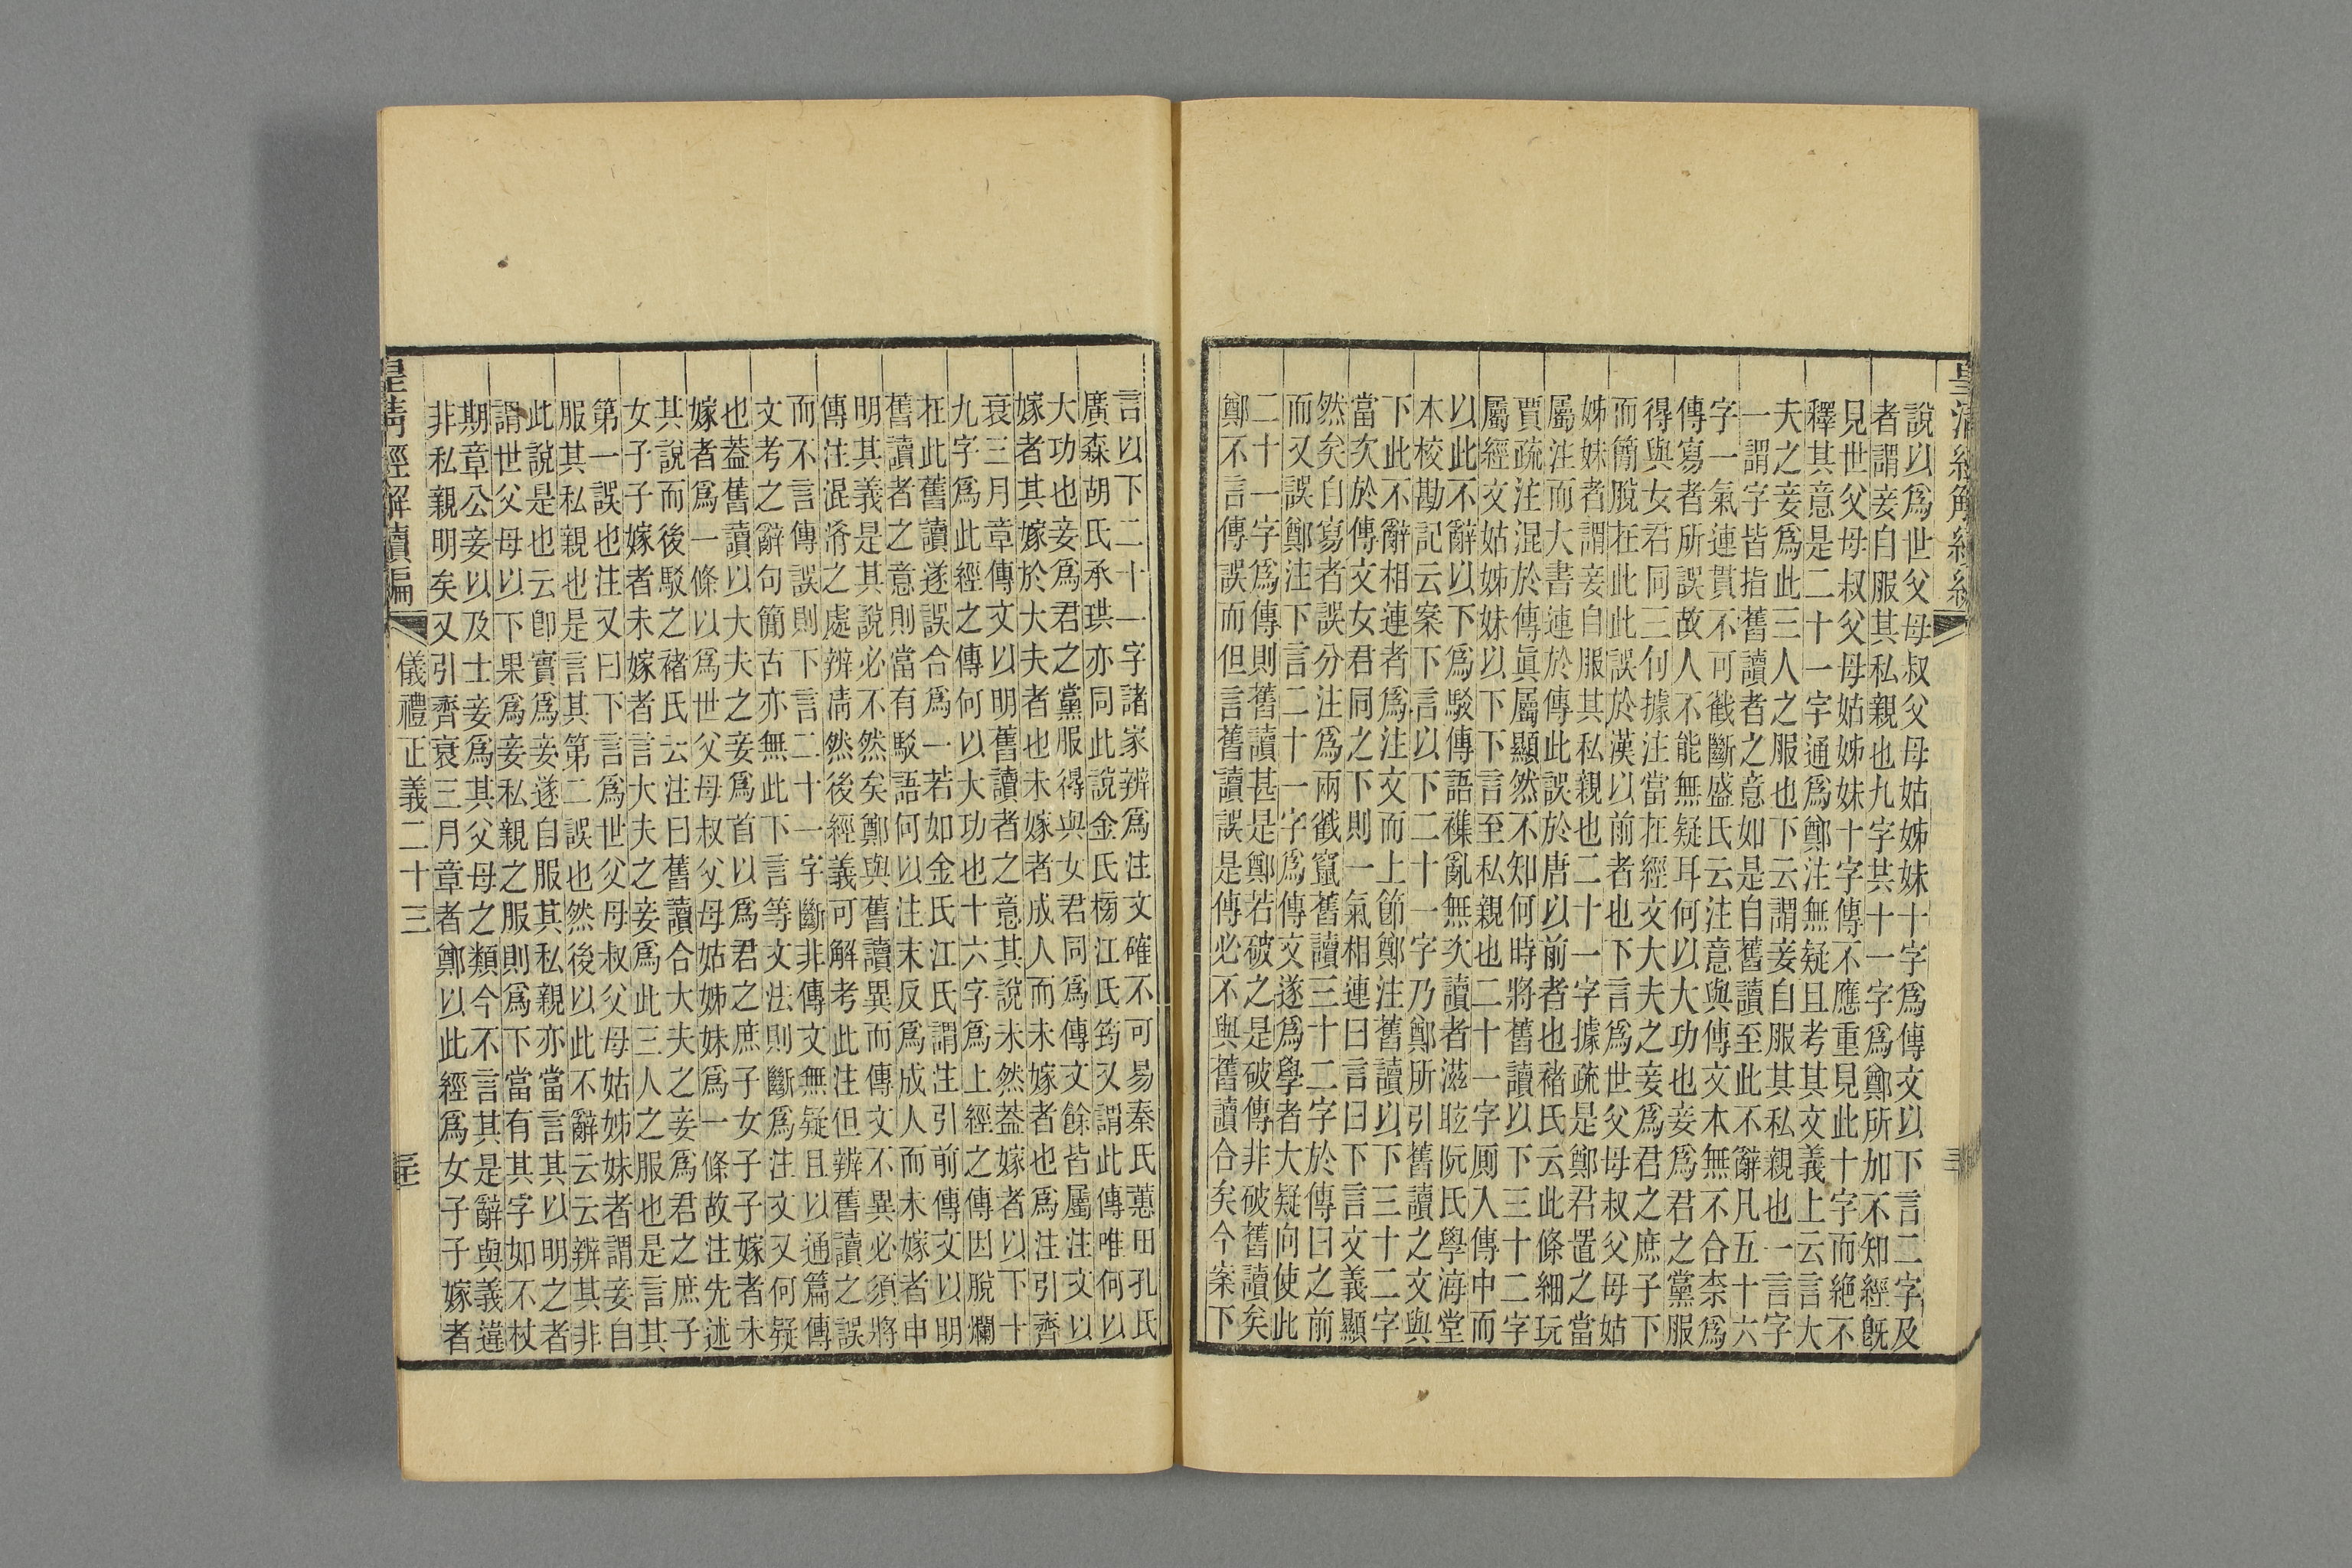 皇清經解續編
說以爲世父母叔父母姑姊妹十字爲傳文以下言二字及
者謂妾自服其私親也九字共十一字爲鄭所加不知經既
見世父母叔父母姑姊妹十字傳不應重見此十字而絶不
釋其意是二十一字通爲鄭注無疑且考其文義上云言大
夫之妾爲此三人之服也下云謂妾自服其私親也一言字
一謂字皆指舊讀者之意如是自舊讀至此不辭凡五十六
字一氣連貫不可截斷盛氏云注意與傳文本無不合柰爲
傳寫者所誤故人不能無疑耳何以大功也妾爲君之黨服
得與女君同三句據注當在經文大夫之妾爲君之庶子下
而簡脫在此此誤於漢以前者也下言爲世父母叔父母姑
姊妹者謂妾自服其私親也二十一字據疏是鄭君置之當
屬注而大書連於傳此誤於唐以前者也褚氏云此條細玩
賈疏注混於傳眞屬顯然不知何時將舊讀以下三十二字
屬經文姑姊妹以下下言至私親也二十一字厠入傳中而
以此不辭以下爲駁傳語襍亂無次讀者滋眩阮氏學海堂
本校勘記云案下言以下二十一字乃鄭所引舊讀之文與
下此不辭相連者爲注文而上節鄭注舊讀以下三十二字
當次於傳文女君同之下則一氣相連曰言曰下言文義顯
然矣自寫者誤分注爲兩截竄舊讀三十二字於傳曰之前
而又誤鄭注下言二十一字爲傳文遂爲學者大疑向使此
二十一字爲傳則舊讀甚是鄭若破之是破傳非破舊讀矣
鄭不言傳誤而但言舊讀誤是傳必不與舊讀合矣今案下
言以下二十一字諸家辨爲注文確不可易秦氏蕙田孔氏
廣森胡氏承珙亦同此說金氏榜江氏筠又謂此傳唯何以
大功也妾爲君之黨服得與女君同爲傳文餘皆屬注文以
嫁者其嫁於大夫者也未嫁者成人而未嫁者也爲注引齊
衰三月章傳文以明舊讀者之意其說未然葢嫁者以下十
九字爲此經之傳何以大功也十六字爲上經之傳因脫爛
在此舊讀遂誤合爲一若如金氏江氏謂注引前傳文以明
舊讀者之意則當有駁語何以注末反爲成人而未嫁者申
明其義是其說必不然矣鄭與舊讀異而傳文不異必須將
傳注混淆之處辨淸然後經義可解考此注但辨舊讀之誤
而不言傳誤則下言二十一字斷非傳文無疑且以通篇傳
文考之辭句簡古亦無此下言等文法則斷爲注文又何疑
也葢舊讀以大夫之妾爲首以爲君之庶子女子子嫁者未
嫁者爲一條以爲世父母叔父母姑姊妹爲一條故注先述
其說而後駁之褚氏云注曰舊讀合大夫之妾爲君之庶子
女子子嫁者未嫁者言大夫之妾爲此三人之服也是言其
第一誤也注又曰下言爲世父母叔父母姑姊妹者謂妾自
服其私親也是言其第二誤也然後以此不辭云云辨其非
此說是也云卽實爲妾遂自服其私親亦當言其以明之者
謂世父母以下果爲妾私親之服則爲下當有其字如不杖
期章公妾以及士妾爲其父母之類今不言其是辭與義違
非私親明矣又引齊衰三月章者鄭以此經爲女子子嫁者
皇清經解續編
儀禮正義二十三